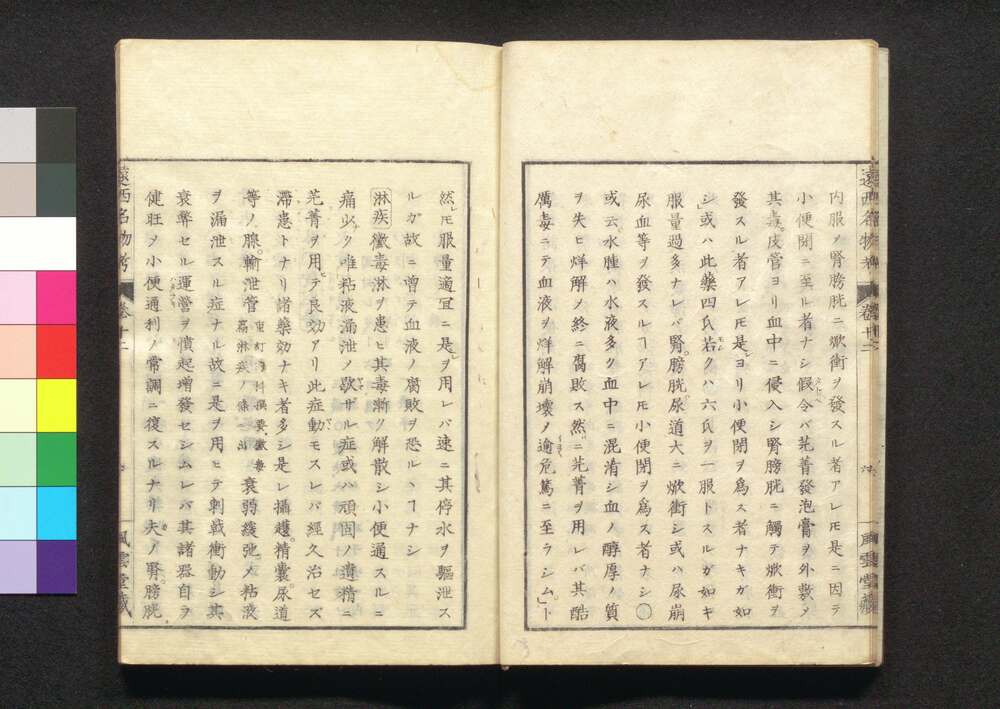 内服ノ腎膀胱ニ焮衝ヲ發スル者アレ𪜈是ニ因テ
小便閉ニ至ル者ナシ假令バ芫菁發泡膏ヲ外敷ノ
其毒皮管ヨリ血中ニ侵入シ腎膀胱ニ觸テ焮衝ヲ
發スル者アレ𪜈是ヨリ小便閉ヲ為ス者ナキガ如
シ或ハ此藥四氏若クハ六氏ヲ一服トスルガ如キ
服量過多ナレバ腎膀胱尿道大ニ焮衝シ或ハ尿崩
尿血等ヲ發スルヿアレ𪜈小便閉ヲ為ス者ナシ○
或云水腫ハ水液多ク血中ニ混淆シ血ノ醇厚ノ質
ヲ失ヒ烊解ノ終ニ腐敗ス然ニ芫菁ヲ用レバ其酷
厲毒ニテ血液ヲ烊解崩壊ノ逾危篤ニ至ラシム」ト
然レ𪜈服量適宜ニ是ヲ用レバ速ニ其停水ヲ驅泄ス
ルガ故ニ曽テ血液ノ腐敗ヲ恐ルヽヿナシ
淋疾黴毒淋ヲ患ヒ其毒漸ク解散シ小便通スルニ
痛少ク唯粘液漏泄ノ歇ザル症或ハ頑固ノ遺精ニ
芫菁ヲ用テ良効アリ此症動モスレバ經久治セズ
滞患トナリ諸藥効ナキ者多シ是レ攝護精囊尿道
等ノ腺輸泄管衰弱緩弛ノ粘液
ヲ漏泄スル症ナル故ニ是ヲ用ヒテ刺戟衝動シ其
衰弊セル運營ヲ憤起増發セシムレバ其諸器自ヲ
健旺ヲ小便通利ノ常調ニ復スルナリ夫ノ腎膀胱
遠西名物考
卷十二
風雲堂藏